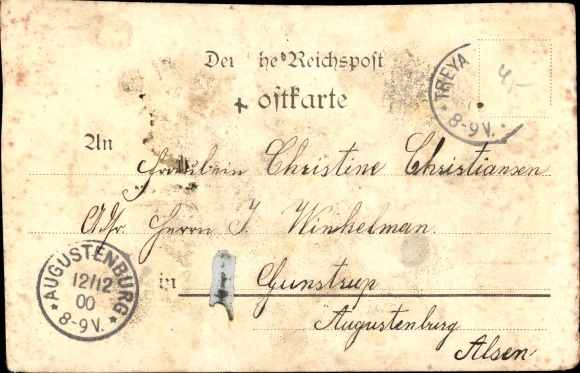 Deu he Reichspost
ostkarte
TREYA
8-9V.
4,-
An
Fräulein Christine Christiansen
Adr. Herrn J. Winkelman.
in Gunstrup
Augustenburg
Alsen
AUGUSTENBURG
12/12
00
8-9V.